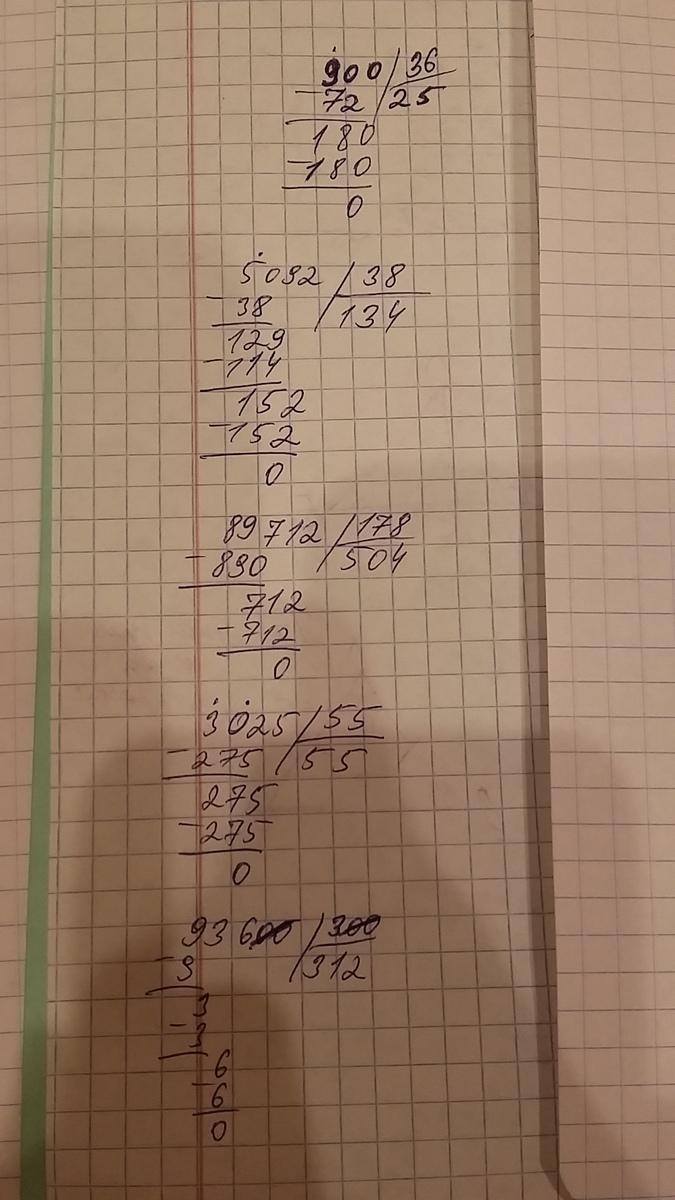 900 36
- 72 25
180
- 180
0
5092 38
- 38 134
129
- 114
152
- 152
0
89712 178
- 890 504
712
- 712
0
3025 55
- 275 55
275
- 275
0
93600 300
- 9 312
3
- 3
6
- 6
0